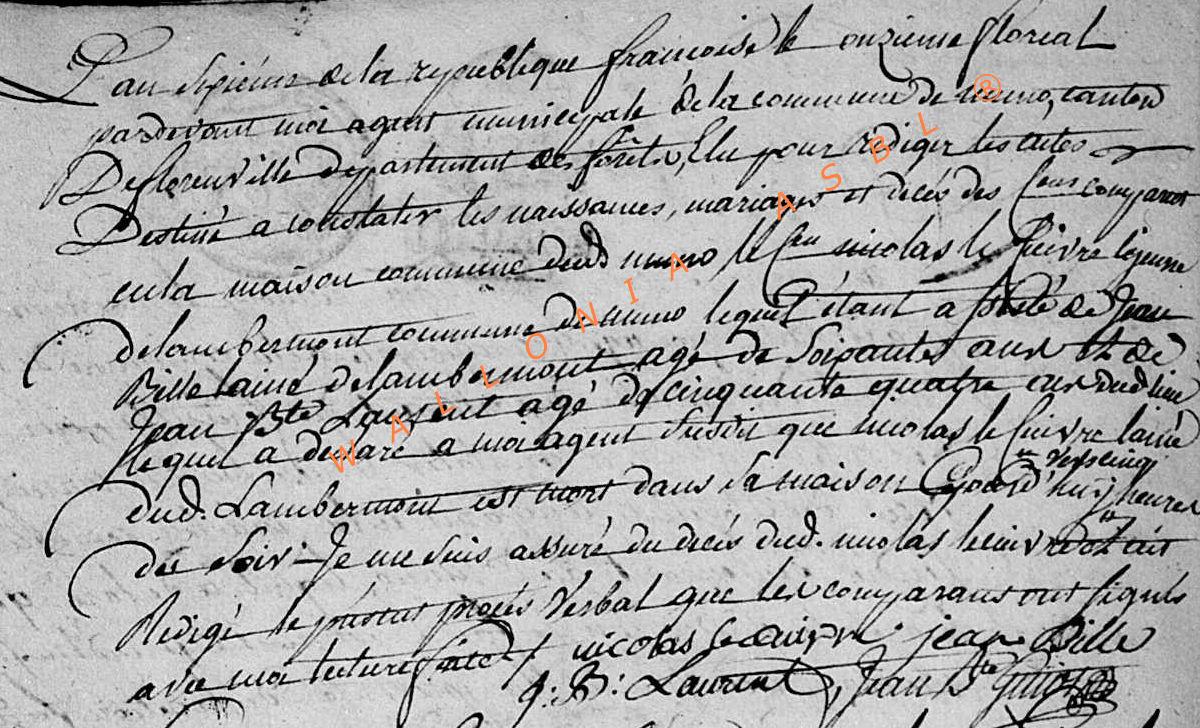 L'an sixiéme de la republique francoise le onzieme floreal
pardevant moi agent municipale de la commune de muno, canton
De florenville departement des forêts, Elu pour rediger les actes
Destiné a constater les naissances, mariages et decés des Cens comparut
en la maison commune dud muno le Cen nicolas le Cuivre le jeune
de lambermont commune de muno lequel étant assisté de Jean
Bille lainé de lambermont agé de Soixante ans et de
Jean Bte Laurent agé de cinquante quatre ans dud lieu
lequel a declaré a moi agent susdit que nicolas le Cuivre lainé
dud. Lambermont est mort dans sa maison Cejourd'huy vers cinq heures
du soir. Je me suis assuré du decés dud. nicolas le cuivre et ait
Redigé le présent procés Verbal que les comparans ont signés
avec moi lecture faite / nicolas le Cuivre jean Bille
J: B: Laurent, Jean Bte
WALLONIA ASBL ®